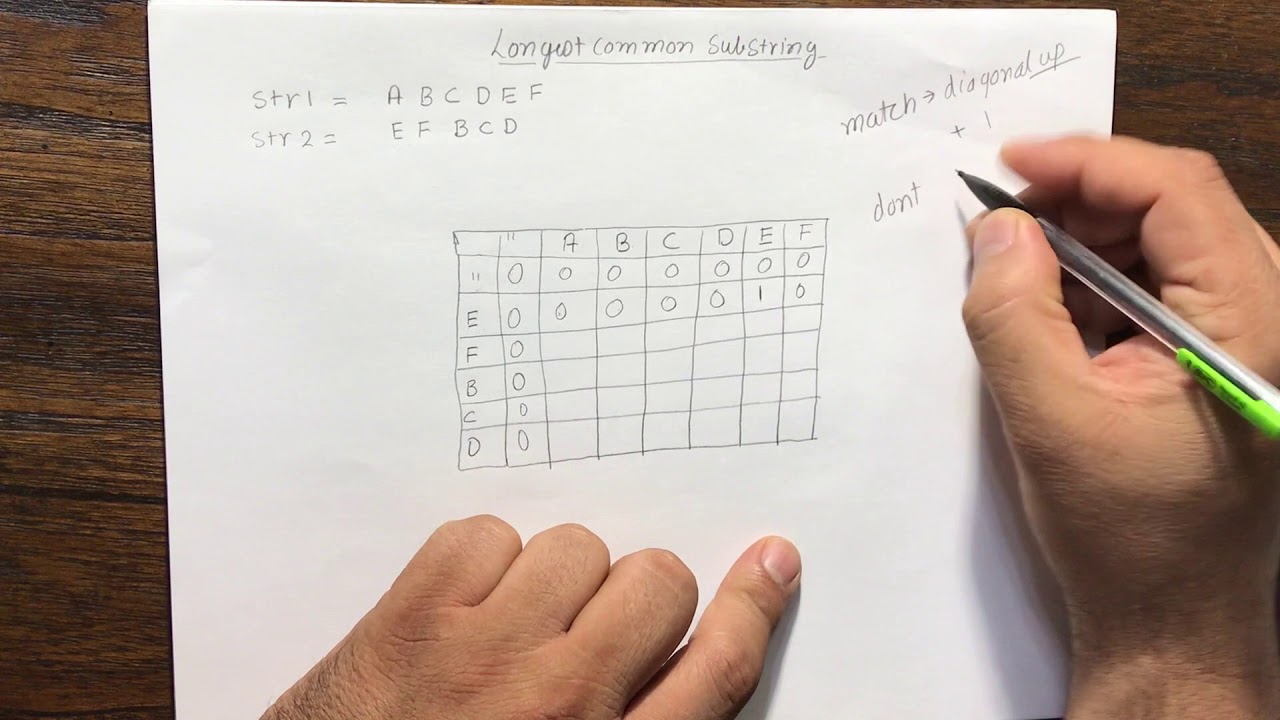 Longest Common Substring
Str1 = A B C D E F
Str2 = E F B C D
match → diagonal up
+ 1
dont
" A B C D E F
" 0 0 0 0 0 0 0
E 0 0 0 0 0 1 0
F 0
B 0
C 0
D 0